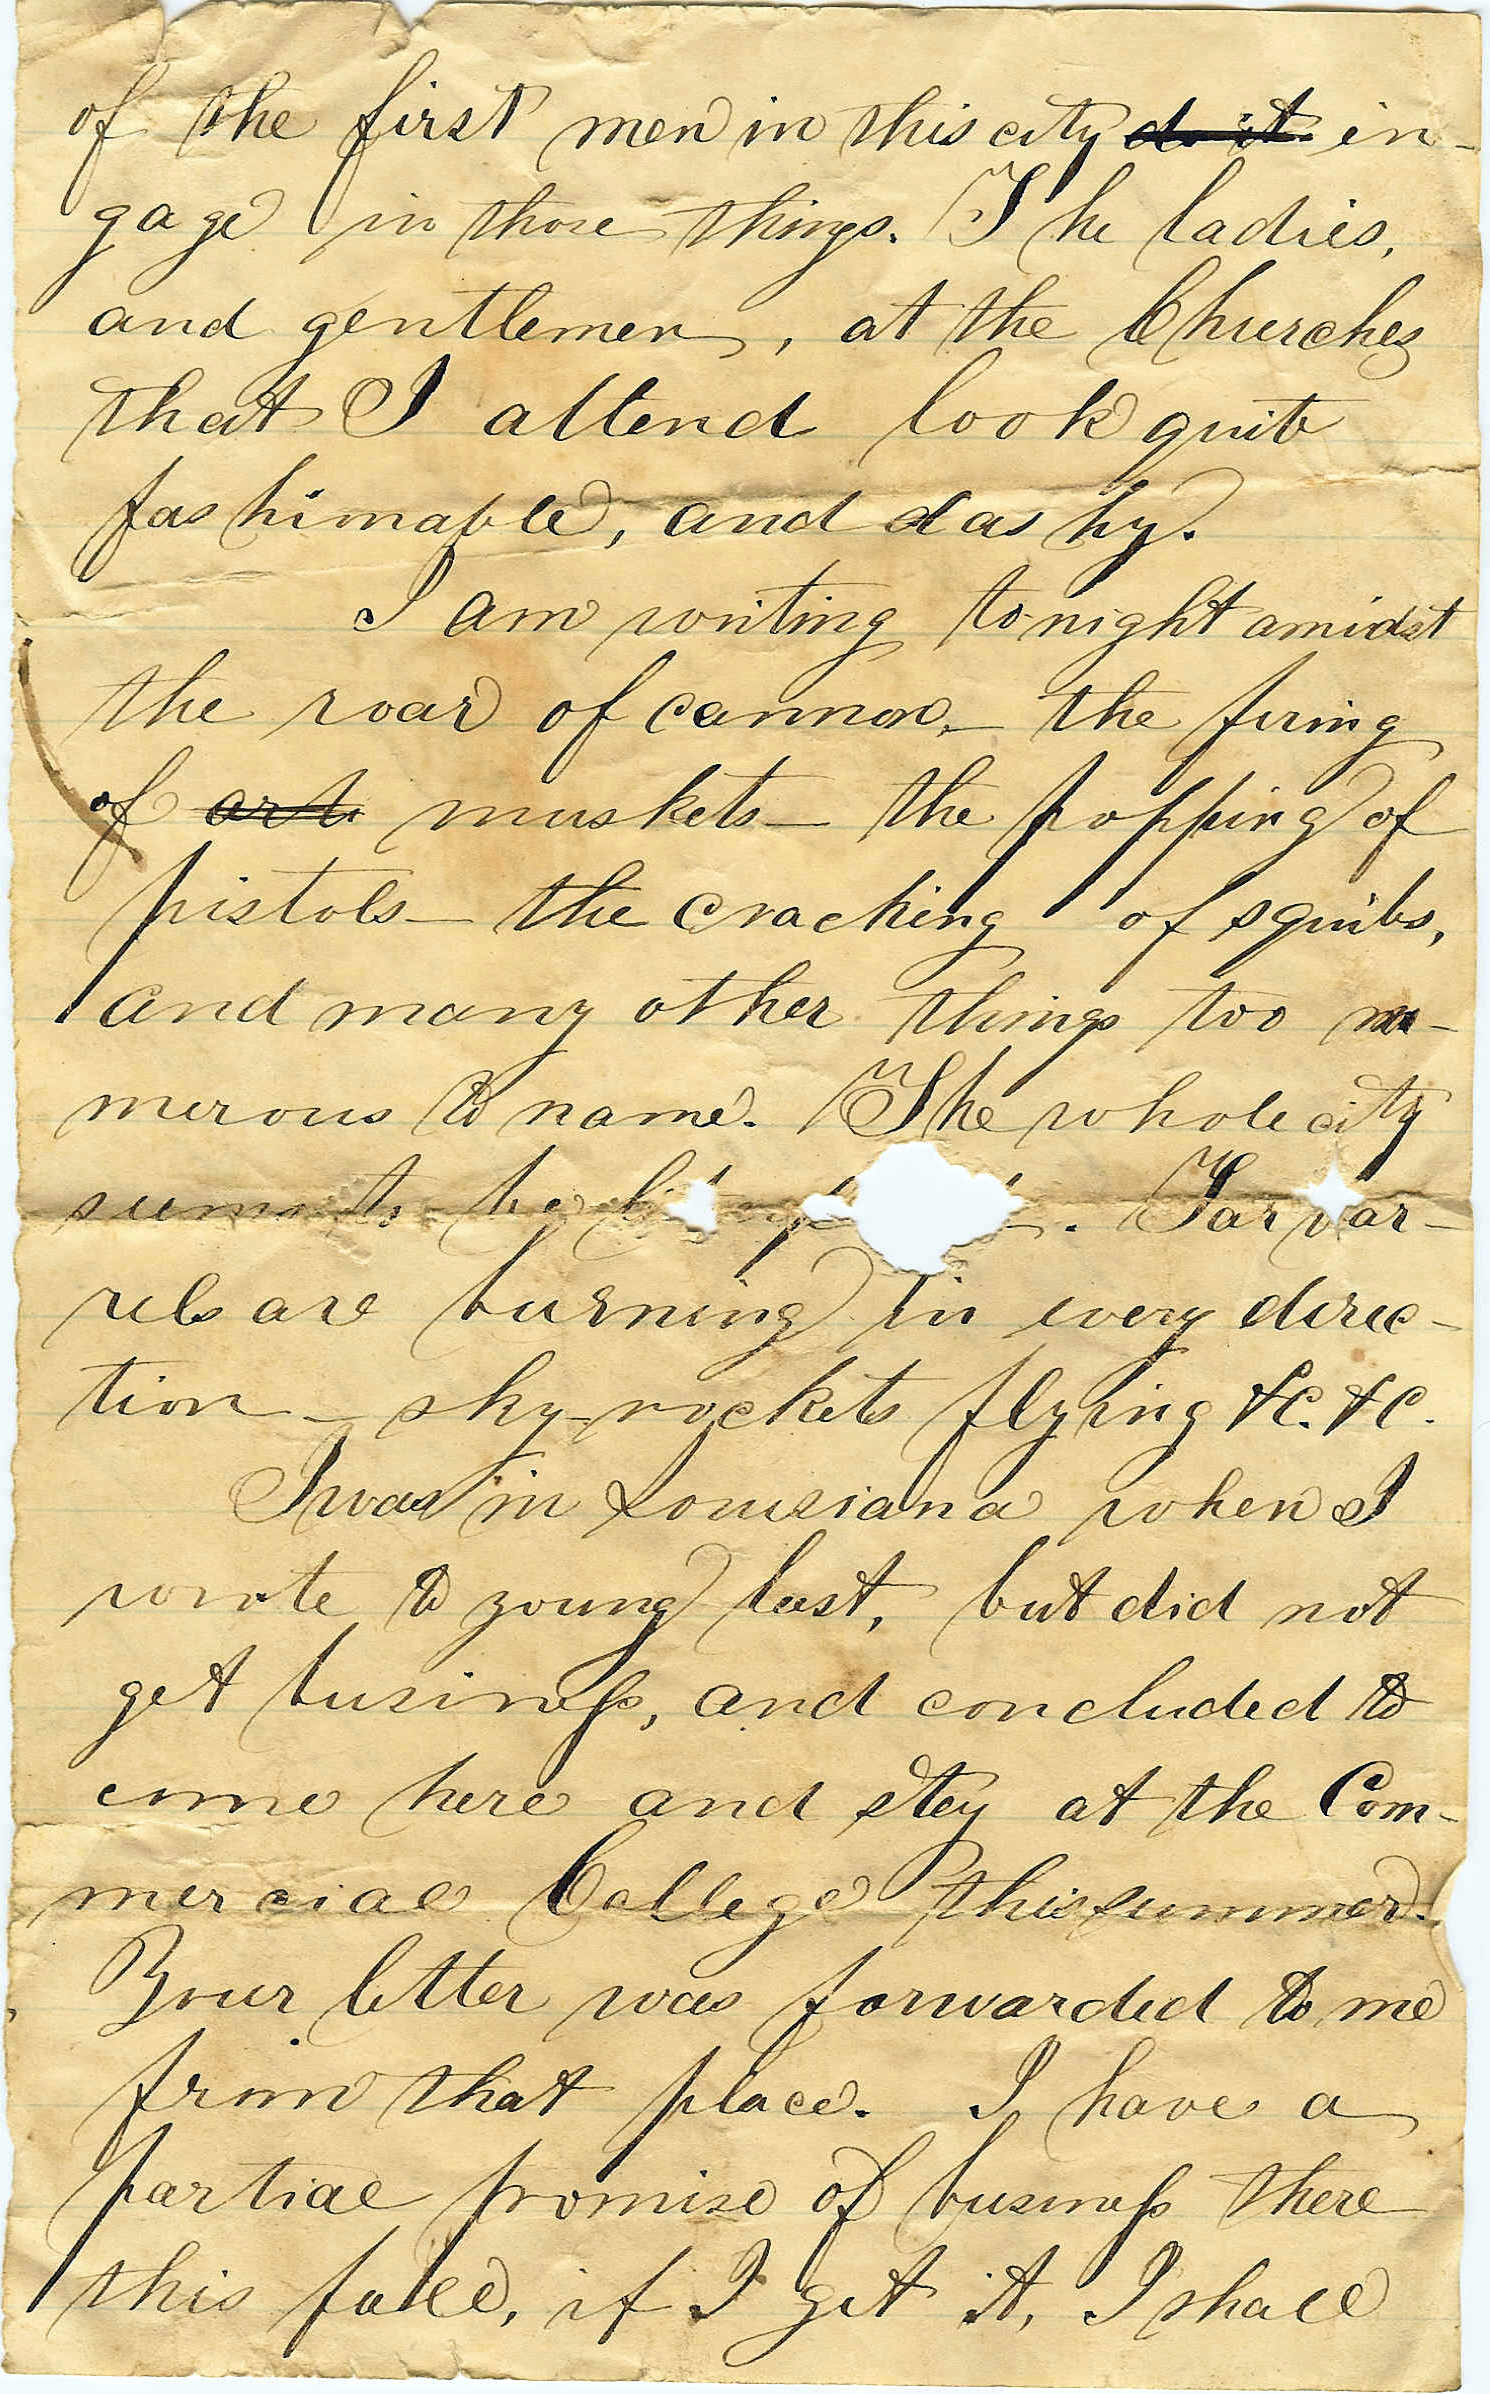 of the first men in this city do it in-
gage in those things. The ladies,
and gentlemen, at the Churches
that I attend look quite
fashionable, and dashy.
I am writing to-night amidst
the roar of cannon,— the firing
of art muskets— the popping of
pistols— the cracking of squibs,
and many other things too nu-
merous to name. The whole city
seems to be. Tar bar-
rels are burning in every direc-
tion— sky-rockets flying &c. &c.
I was in Louisiana when I
wrote to young last, but did not
get business, and concluded to
come here and stay at the Com-
mercial College this summer.
Your letter was forwarded to me
from that place. I have a
partial promise of business there
this fall, if I get it, I shall